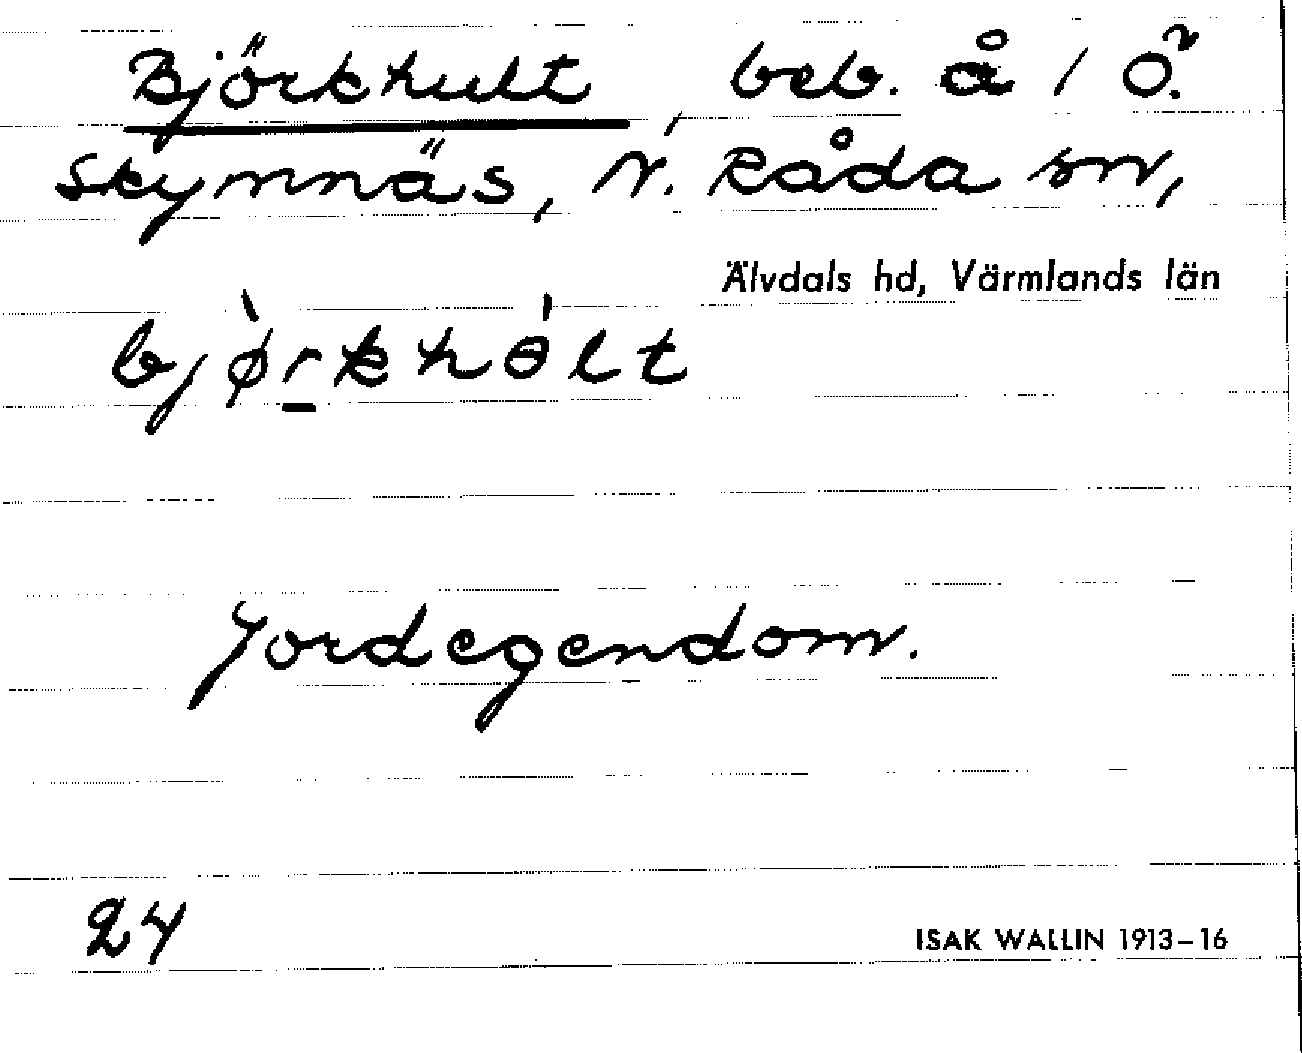 Björkhult, beb. å 1/ Ö.
Skymnäs, N. Råda sn,
Älvdals hd, Värmlands län
bjø̀rkhөlt
Jordegendom.
24
ISAK WALLIN 1913–16